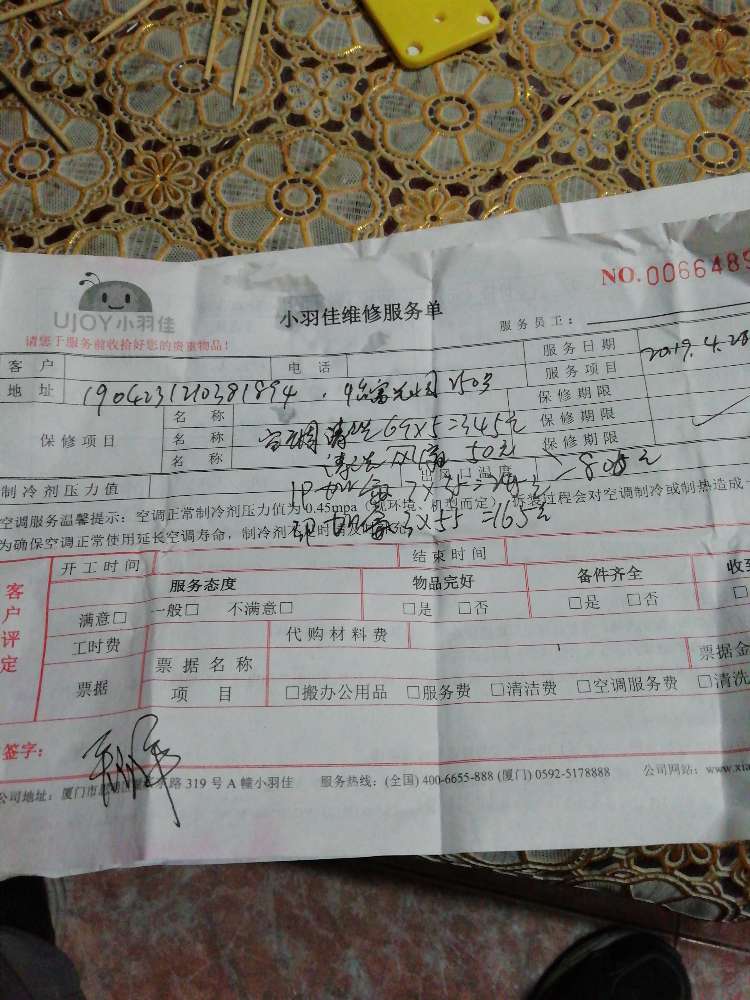 NO.0066489
UJOY小羽佳
小羽佳维修服务单
请您于服务前收拾好您的贵重物品!
服务员工:
客户 电话 服务日期 2019.4.28
地址 1904231210381894 服务项目
保修项目
名称 保修期限
名称 空调清洗69×5=345元 保修期限
名称 清洗 50元 保修期限
制冷剂压力值 出风口温度 =805元
7×35=245元
3×55=165元
空调服务温馨提示:空调正常制冷剂压力值为0.45mpa(视环境、机型而定) 拆装过程会对空调制冷或制热造成
为确保空调正常使用延长空调寿命,制冷剂不足时
客户评定
开工时间 结束时间
服务态度 物品完好 备件齐全 收
满意□ 一般□ 不满意□ □是 □否 □是 □否 □
工时费 代购材料费
票据 票据名称 票据金
项目 □搬办公用品 □服务费 □清洁费 □空调服务费 □清洗
签字:
公司地址:厦门市 路319号A幢小羽佳 服务热线:(全国)400-6655-888 (厦门)0592-5178888 公司网站:www.xia